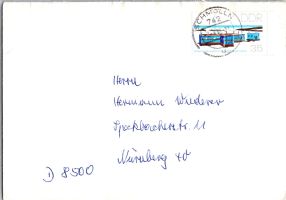 SCHMÖLLN
742
DDR
35
Herrn
Hermann Wiederer
Speckbacherstr. 11
D 8500
Nürnberg 40